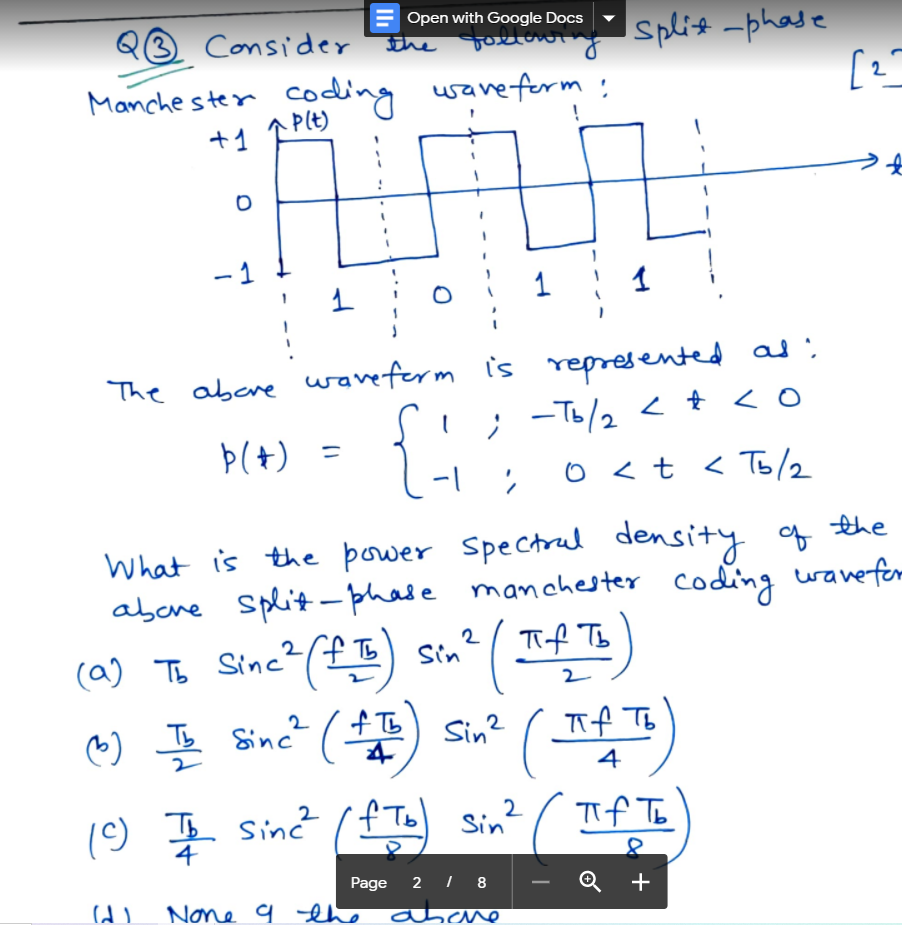 Open with Google Docs
Q③ Consider the following split-phase
[2]
Manchester coding waveform :
P(t)
+1
0
t
-1
1 0 1 1
The above waveform is represented as :
p(t) = { 1 ; -Tb/2 < t < 0
-1 ; 0 < t < Tb/2
What is the power spectral density of the
above split-phase manchester coding
(a) Tb Sinc²(f Tb/2) sin²(πf Tb/2)
(b) Tb/2 Sinc²(f Tb/4) Sin²(πf Tb/4)
(c) Tb/4 Sinc²(f Tb/8) Sin²(πf Tb/8)
Page 2 / 8 − +
(d) None of the above